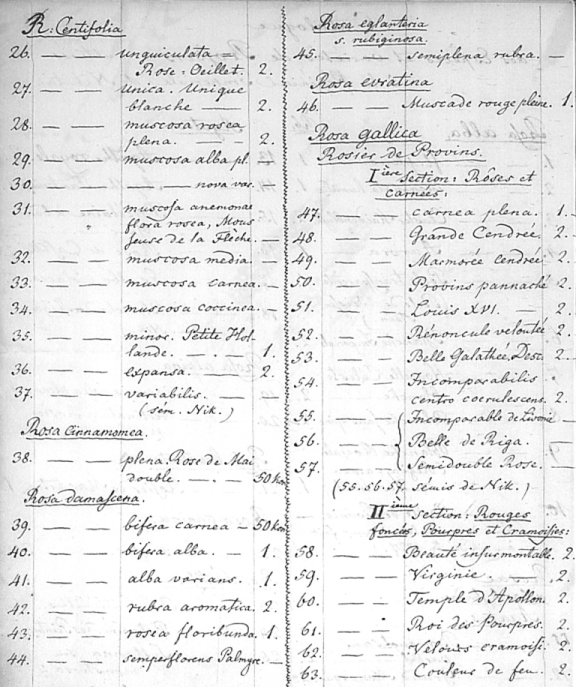 R: Centifolia
26. — — unguiculata =
Rose: Oeillet. 2.
27. — — Unica. Unique
blanche — 2.
28. — — muscosa rosea
plena. — — 2.
29. — — muscosa alba pl. —
30. — — — nova var. —
31. — — muscosa anemonae
flora rosea, Mous
seuse de la Flêche. —
32. — — muscosa media —
33. — — muscosa carnea. —
34. — — muscosa coccinea. —
35. — — minor. Petite Hol-
lande. — . — 1.
36. — — expansa. — 2.
37. — — variabilis. —
(sem. Nik.)
Rosa Cinnamomea.
38. — — plena. Rose de Mai
double. — . — 50 kop
Rosa damascena.
39. — — bifera carnea — 50 kop
40. — — bifera alba. — 1.
41. — — alba varians. 1.
42. — — rubra aromatica. 2.
43. — — rosea floribunda. 1.
44. — — semperflorens Palmyre. —
Rosa eglanteria
s. rubiginosa.
45. — — semiplena rubra. —
Rosa evratina
46. — — Muscade rouge pleine. 1.
Rosa gallica
Rosier de Provins.
Ière Section: Rôses et
carnées:
47. — — carnea plena. 1. —
48. — — Grande Cendrée. 2. —
49. — — Marmorée cendrée. 2. —
50. — — Provins pannaché 2. —
51. — — Louis XVI. 2.
52. — — Renoncule veloutée 2.
53. — — Belle Galathée, Desc. 2.
54. — — Incomparabilis
centro coerulescens. 2.
55. — — Incomparable de Livonie —
56. — — Belle de Riga. — —
57. — — Semidouble Rose. —
(55. 56. 57. sémis de Nik.)
IIième Section: Rouges
foncés, Pourpres et Cramoisies:
58. — — Beauté insurmontable. 2.
59. — — Virginie. — 2.
60. — — Temple d'Apollon. 2.
61. — — Roi des Pourpres. 2.
62. — — Velours cramoisi. 2.
63. — — Couleur de feu. 2.